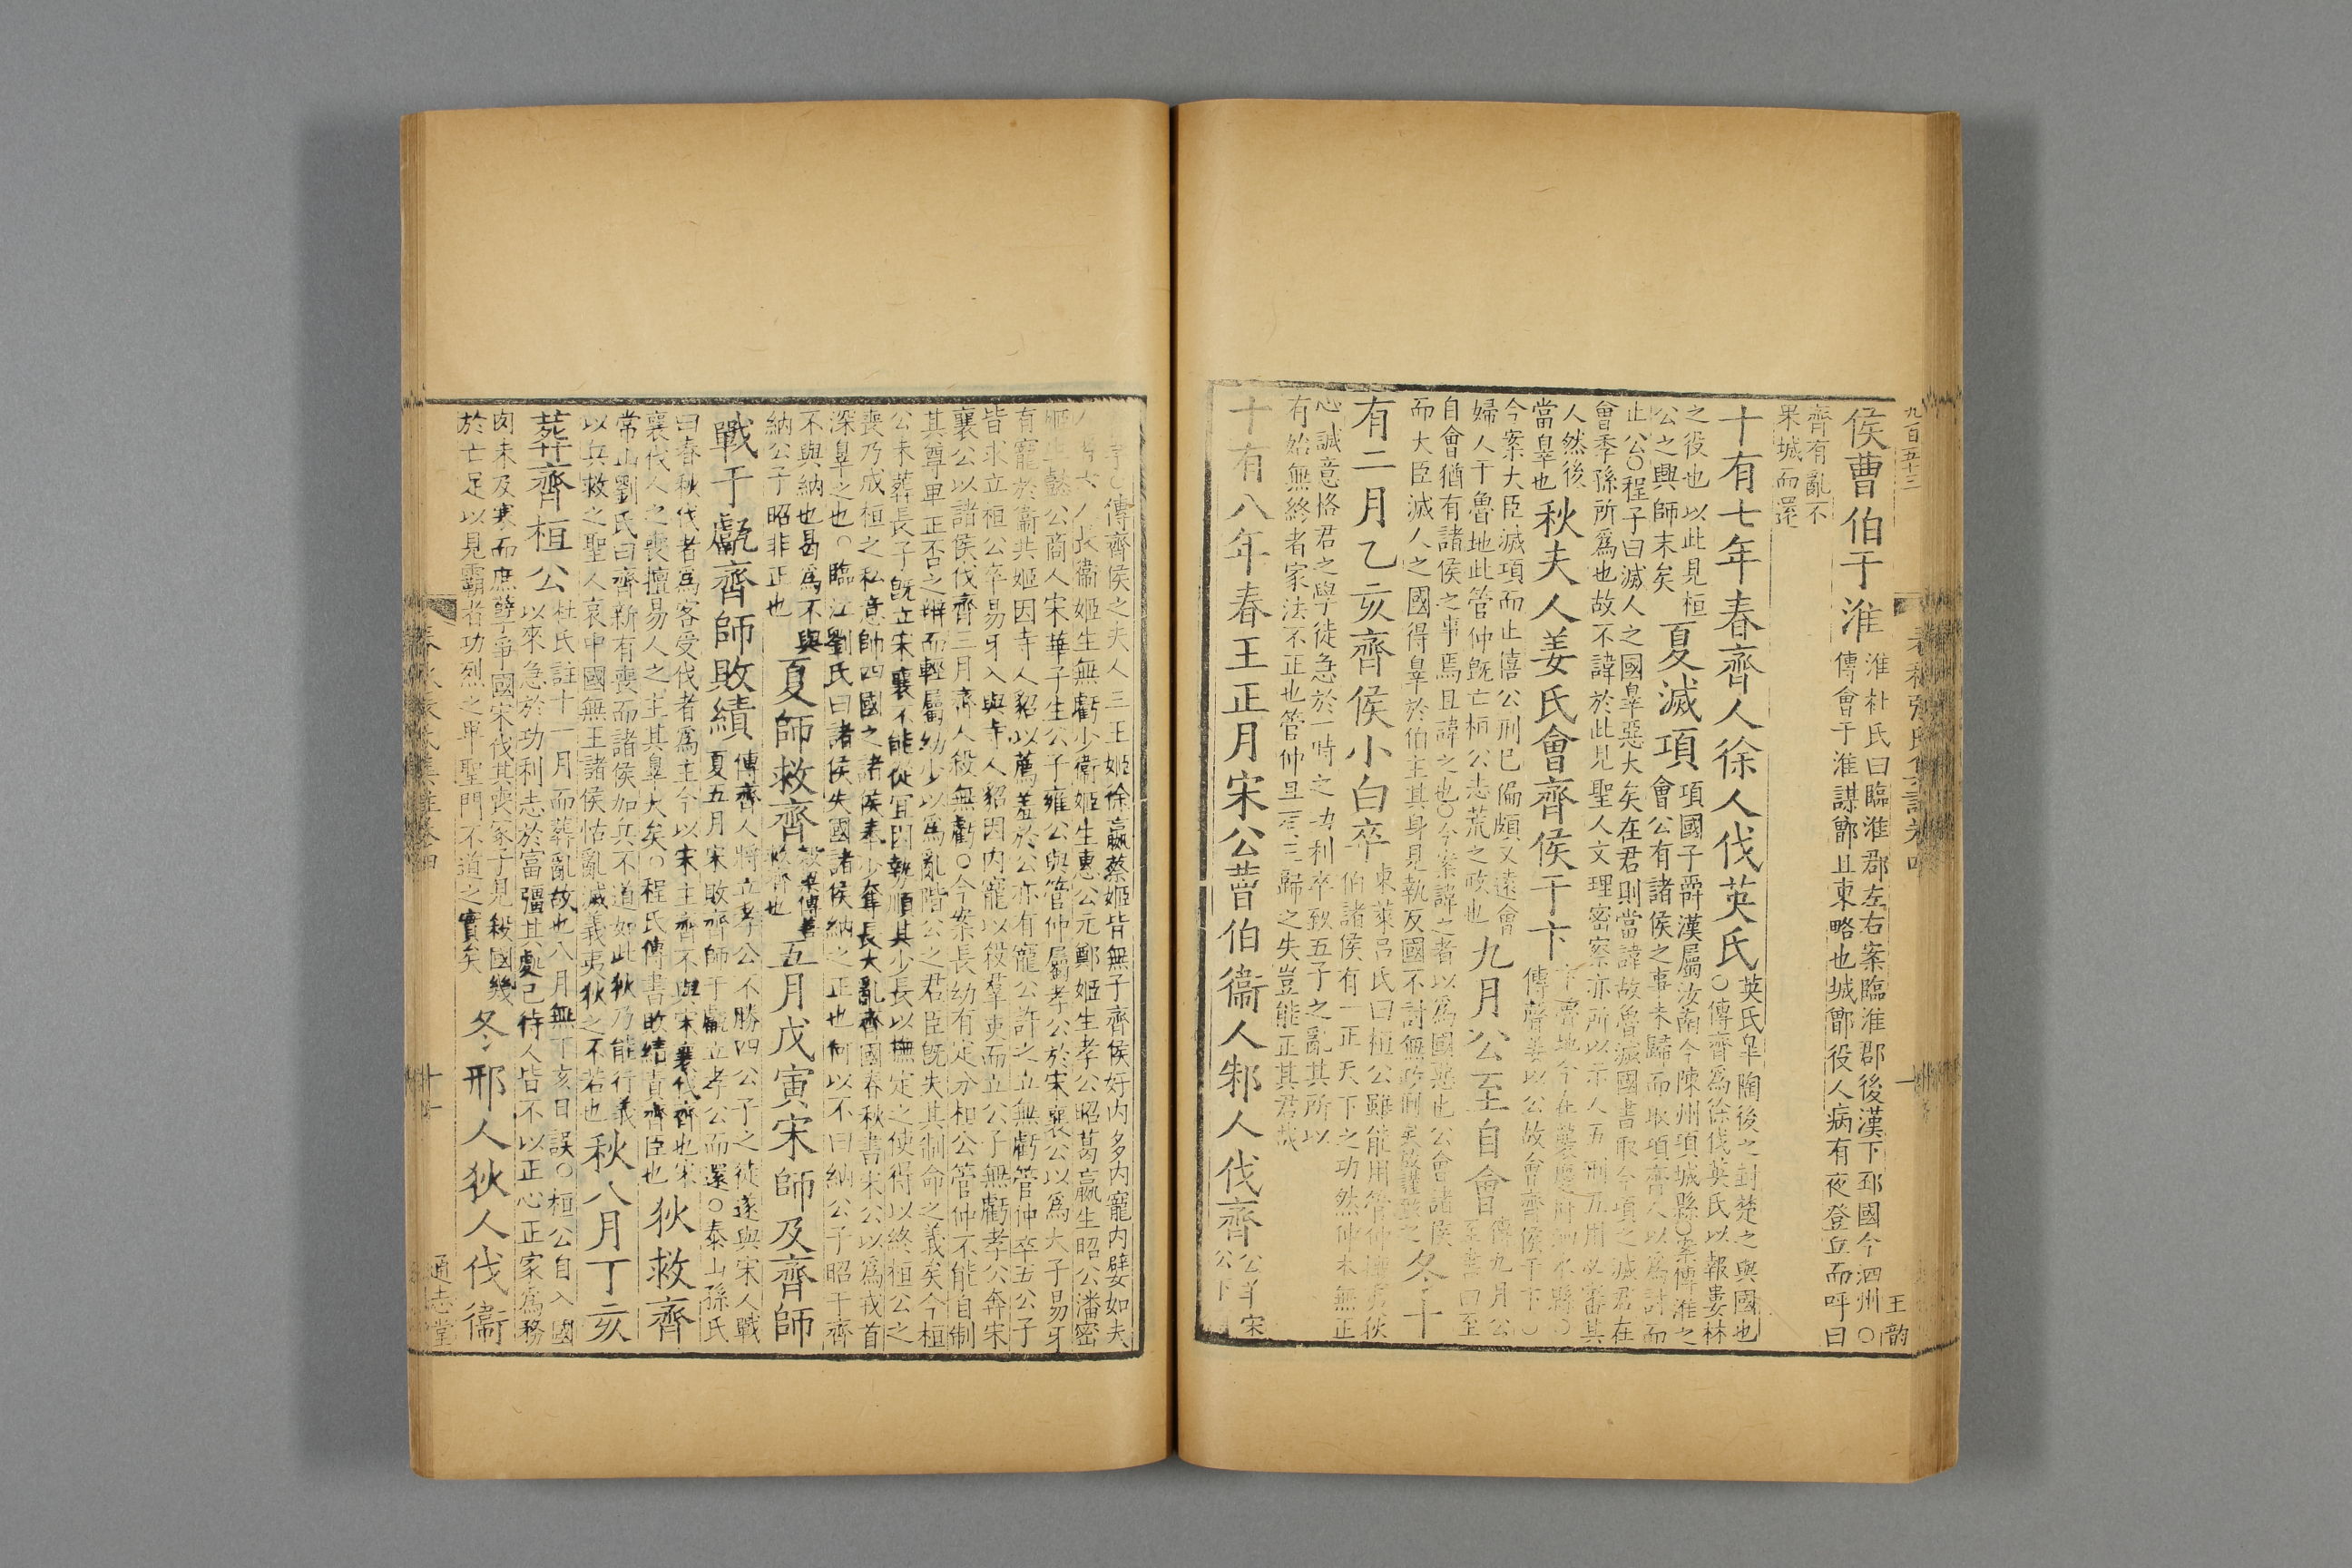 侯曹伯于淮
淮杜氏曰臨淮郡左右案臨淮郡後漢下邳國今泗州○
傳會于淮謀鄫且東略也城鄫役人病有夜登丘而呼曰
齊有亂不
果城而還
十有七年春齊人徐人伐英氏
英氏皐陶後之封楚之與國也
○傳齊爲徐伐英氏以報婁林
之役也以此見桓
公之興師末矣
夏滅項
項國子爵漢屬汝南今陳州項城縣○案傳淮之
會公有諸侯之事未歸而取項齊人以爲討而
止公○程子曰滅人之國辠惡大矣在君則當諱故魯滅國書取今項之滅君在
會季孫所爲也故不諱於此見聖人文理密察亦所以示人五刑五用必審其
人然後
當辠也
秋夫人姜氏會齊侯于卞
傳聲姜以公故會齊侯于卞○
今案大臣滅項而止僖公刑已偏頗又遠會
婦人于魯地此管仲旣亡桓公志荒之政也
九月公至自會
傳九月公
至書曰至
自會猶有諸侯之事焉且諱之也○今案諱之者以爲國惡也公會諸侯
而大臣滅人之國得辠於伯主其身見執反國不討無政刑矣故謹致之
冬十
有二月乙亥齊侯小白卒
東萊呂氏曰桓公雖能用管仲
伯諸侯有一正天下之功然仲本無正
心誠意格君之學徒急於一時之功利卒致五子之亂其所以
有始無終者家法不正也管仲且有三歸之失豈能正其君哉
十有八年春王正月宋公曹伯衞人邾人伐齊
公羊宋
公下
傳齊侯之夫人三王姬徐嬴蔡姬皆無子齊侯好内多内寵内嬖如夫
人者六人長衞姬生無虧少衞姬生惠公元鄭姬生孝公昭葛嬴生昭公潘密
姬生懿公商人宋華子生公子雍公與管仲屬孝公於宋襄公以爲大子易牙
有寵於衞共姬因寺人貂以薦羞於公亦有寵公許之立無虧管仲卒五公子
皆求立桓公卒易牙入與寺人貂因内寵以殺羣吏而立公子無虧孝公奔宋
襄公以諸侯伐齊三月齊人殺無虧○今案長幼有定分桓公管仲不能自制
其尊卑正否之辨而輕屬幼少以爲亂階公之君臣旣失其制命之義矣今桓
公未葬長子旣立宋襄不能從宜因勢順其少長以撫定之使得以終桓公之
喪乃成桓之私意帥四國之諸侯奉少奪長大亂齊國春秋書宋公以爲戎首
深辠之也○臨江劉氏曰諸侯失國諸侯納之正也何以不曰納公子昭于齊
不與納也曷爲不與
納公子昭非正也
夏師救齊
穀梁傳善
救齊也
五月戊寅宋師及齊師
戰于甗齊師敗績
傳齊人將立孝公不勝四公子之徒遂與宋人戰
夏五月宋敗齊師于甗立孝公而還○泰山孫氏
曰春秋伐者爲客受伐者爲主今以宋主齊不與宋襄伐齊也宋
襄伐人之喪擅易人之主其辠大矣○程氏傳書敗績責齊臣也
狄救齊
常山劉氏曰齊新有喪而諸侯加兵不道如此狄乃能行義
以兵救之聖人哀中國無王諸侯怙亂滅義夷狄之不若也
秋八月丁亥
葬齊桓公
杜氏註十一月而葬亂故也八月無丁亥日誤○桓公自入國
以來急於功利志於富彊其處己待人皆不以正心正家爲務
肉未及寒而庶孽爭國宋伐其喪冢子見殺國幾
於亡足以見霸者功烈之卑聖門不道之實矣
冬邢人狄人伐衞
九百五十三
春秋張氏集註卷四
王韵
春秋張氏集註卷四
十一
通志堂